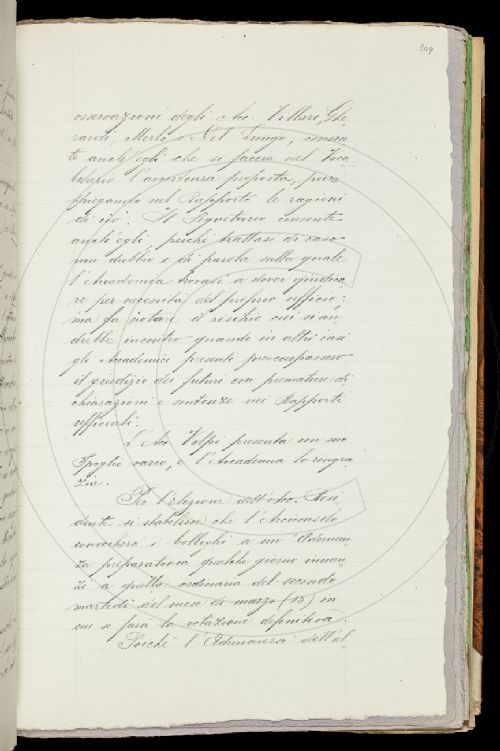 209
osservazioni degli Acc. Villari, Ghe,
rardi, Merlo e Del Lungo, consen
te anch'egli che si faccia nel Voca
bolario l'avvertenza proposta, pur
spiegando nel Rapporto le ragioni
di ciò. Il Segretario consente
anch'egli, perchè trattasi di caso
non dubbio e di parola sulla quale
l'Accademia trovasi a dover giudica
re per necessità del proprio ufficio:
ma fa notare il rischio cui si an
drebbe incontro quando in altri casi
gli Accademici presenti preoccupassero
il giudizio dei futuri con premature di
chiarazioni e sentenze nei Rapporti
ufficiali.
L'Acc. Volpi presenta un suo
Spoglio vario, e l'Accademia lo ringra
zia.
Per l'elezione dell'Acc. Resi
dente si stabilisce che l'Arciconsolo
convocherà i Colleghi a un'Adunan
za preparatoria qualche giorno innan
zi a quella ordinaria del secondo
martedì del mese di marzo (13) in
cui si farà la votazione definitiva.
Poichè l'Adunanza dell'al